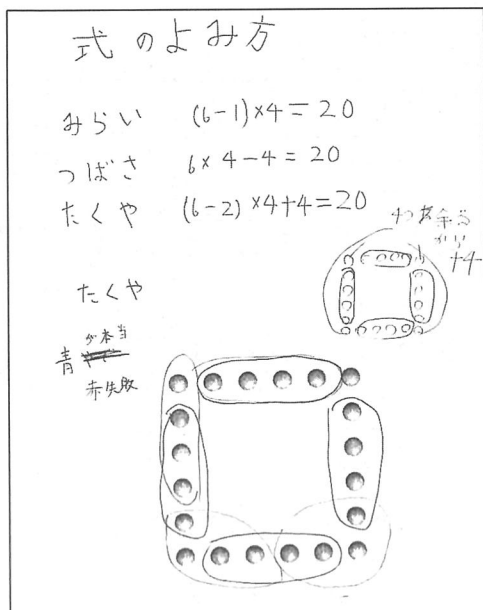 式のよみ方
みらい (6-1)×4=20
つばさ 6×4-4=20
たくや (6-2)×4+4=20
4つあ余る
から
+4
たくや
が本当
青
赤失敗